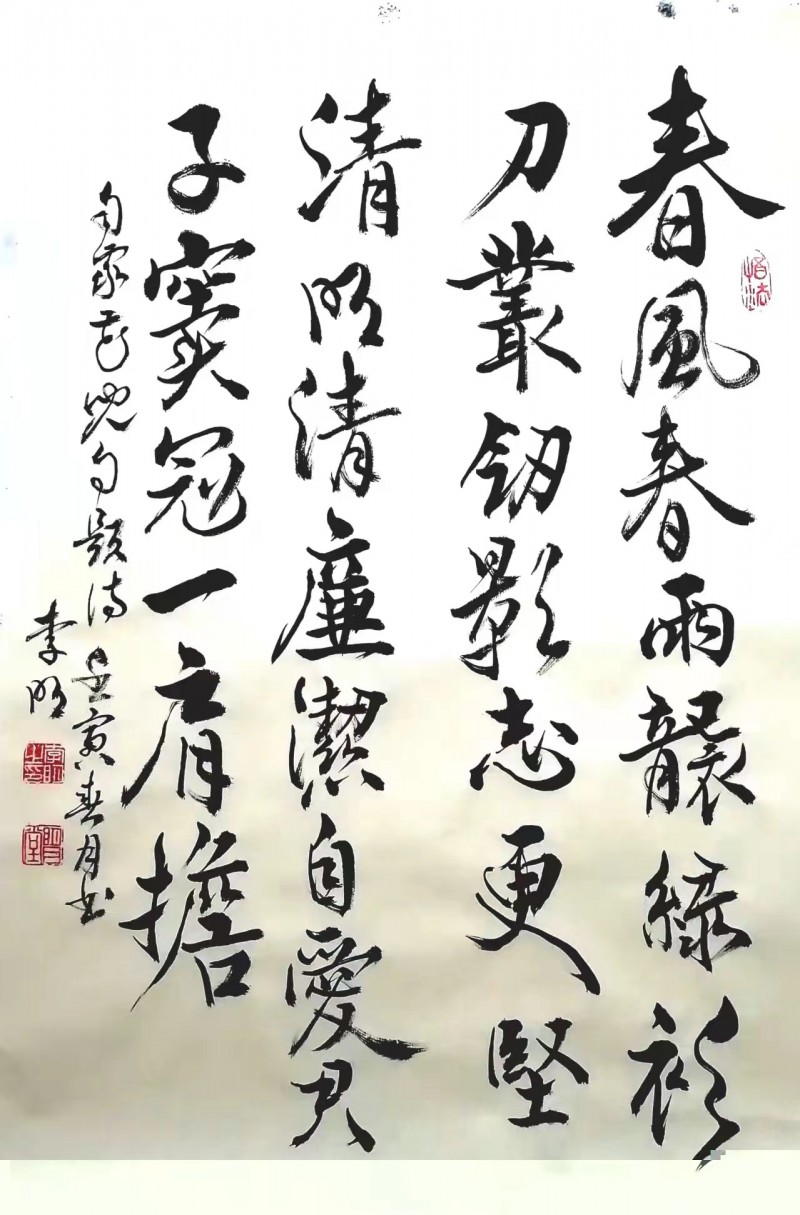 春風春雨襲綠衫
刀叢劒影志更堅
清明清廉潔自愛君
子寞冠一肩擔
自家花婉句題诗 壬寅春月书
李明